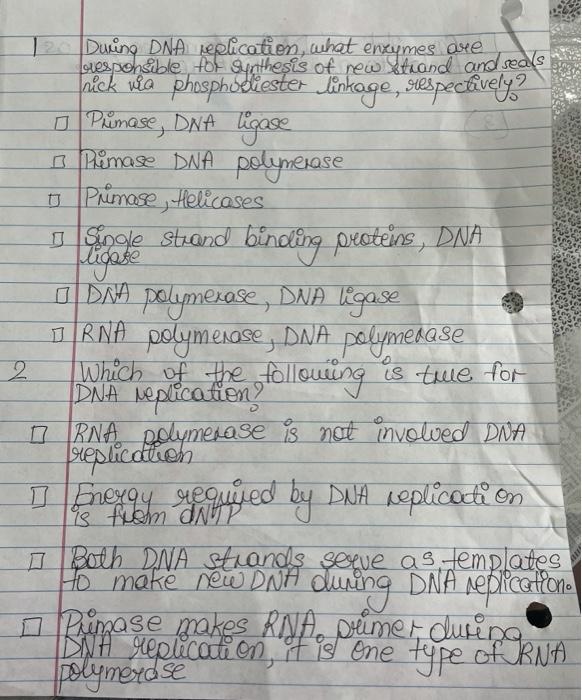 1 During DNA replication, what enzymes are
responsible for synthesis of new strand and seals
nick via phosphodiester linkage, respectively?
□ Primase, DNA ligase
□ Primase DNA polymerase
□ Primase, Helicases
□ Single strand binding proteins, DNA
ligase
□ DNA polymerase, DNA ligase
□ RNA polymerase, DNA polymerase
2 Which of the following is true for
DNA replication?
□ RNA polymerase is not involved DNA
replication
□ Energy required by DNA replication
is from dNTP
□ Both DNA strands serve as templates
to make new DNA during DNA replication.
□ Primase makes RNA primer during
DNA replication, it is one type of RNA
polymerase